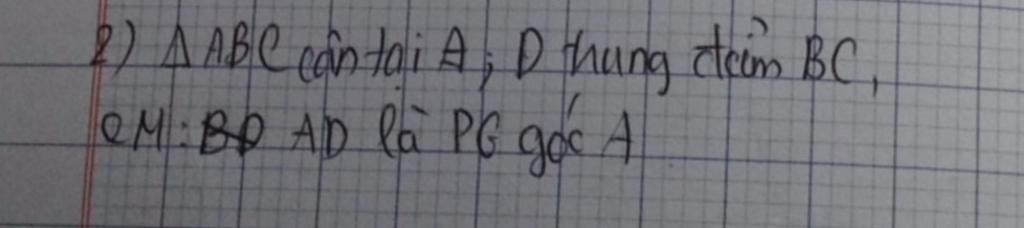 2) Δ ABC cân tại A; D trung điểm BC,
CM: AD là PG góc A